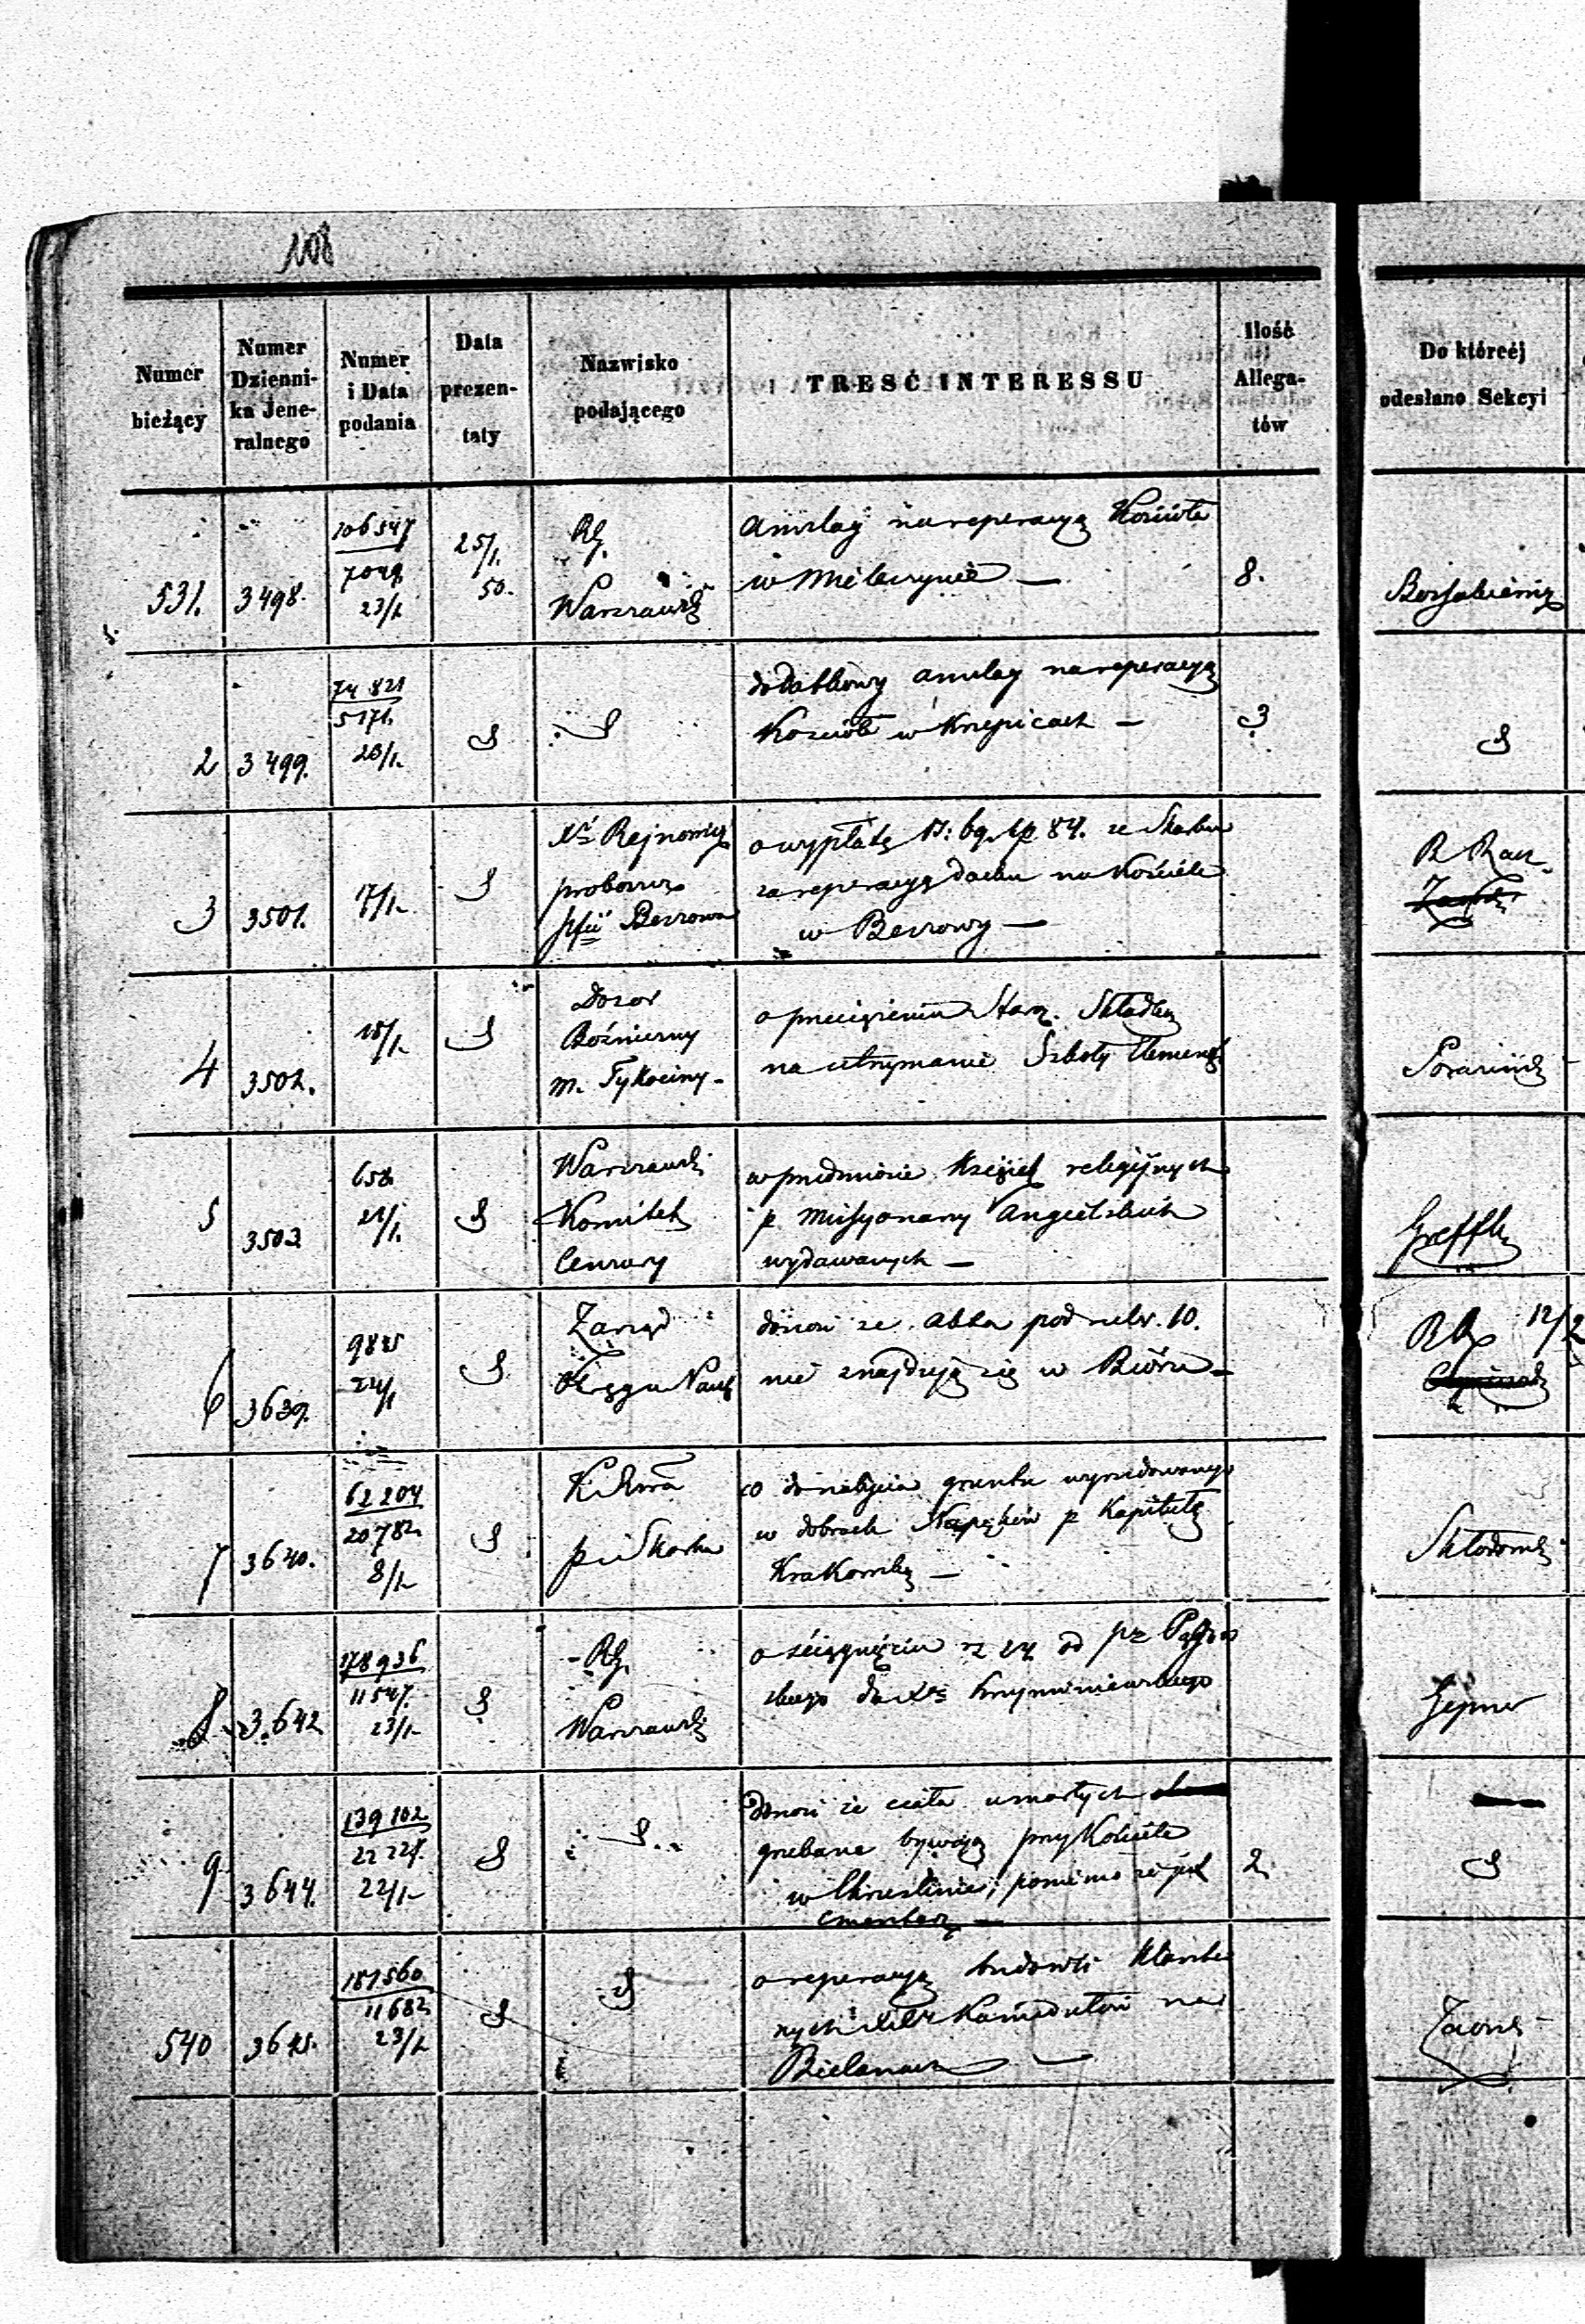 108
Numer bieżący
Numer Dzienni-ka Jene-ralnego
Numer i Data podania
Data prezen-taty
Nazwisko podającego
TRESĆ INTERESSU
Ilość Allega-tów
Do któréj odesłano Sekcyi
531. 3498. 106547 7049. 23/1. 25/1. 50. RG. Warszawski
Anszlag na reperacyą Kościoła
w Mileczynie — 8.
2 3499. 74821 5171. 23/1. S S
dodatkowy anszlag na reperacyą
Kościoła w Krzepicach — 3 S
3 3501. 17/1. S
Xs Rejnowicz
proboszcz
Pfii Berzowa
o wypłatę 84. ze Skarbu
za reperacyą dachu na Kościele
w Berzowy —
4 3502. 18/1. S
Dozor
Bożniczny
m. Tykociny-
o Składkę
na utrzymanie Szkoły Elemens
5 3503 658. 21/1. S
Warszawski
Komitet
Cenzury
w przedmiocie Książek religijnych
p. Missyonarzy Angielskich
wydawanych —
6 3639. 9825 24/1 S
Zarząd
Okręgu Nauk
donosi ze akta pod 10.
nie znajdują się w Biórze —
12/2
7 3640. 62204 20782. 8/1. S
K. Rma
p. i Skarbu
co do nabycia gruntu
w dobrach p Kapitułę
Krakowską —
8 3.642 178936 11547. 23/1. S
RG.
Warszawski
o ściągnięciu rs 24 od
do Xs
9 3644. 139102 22/1. S S
donosi że ciała umarłych
grzebane bywają przy Kościele
w Chruslinie, pomimo że jest
cmentarz — 2. S
540 3645. 187560 11682. 23/1. S S
o reperacyą budowli klaszto
nych XX Kamedułów na
Bielanach —